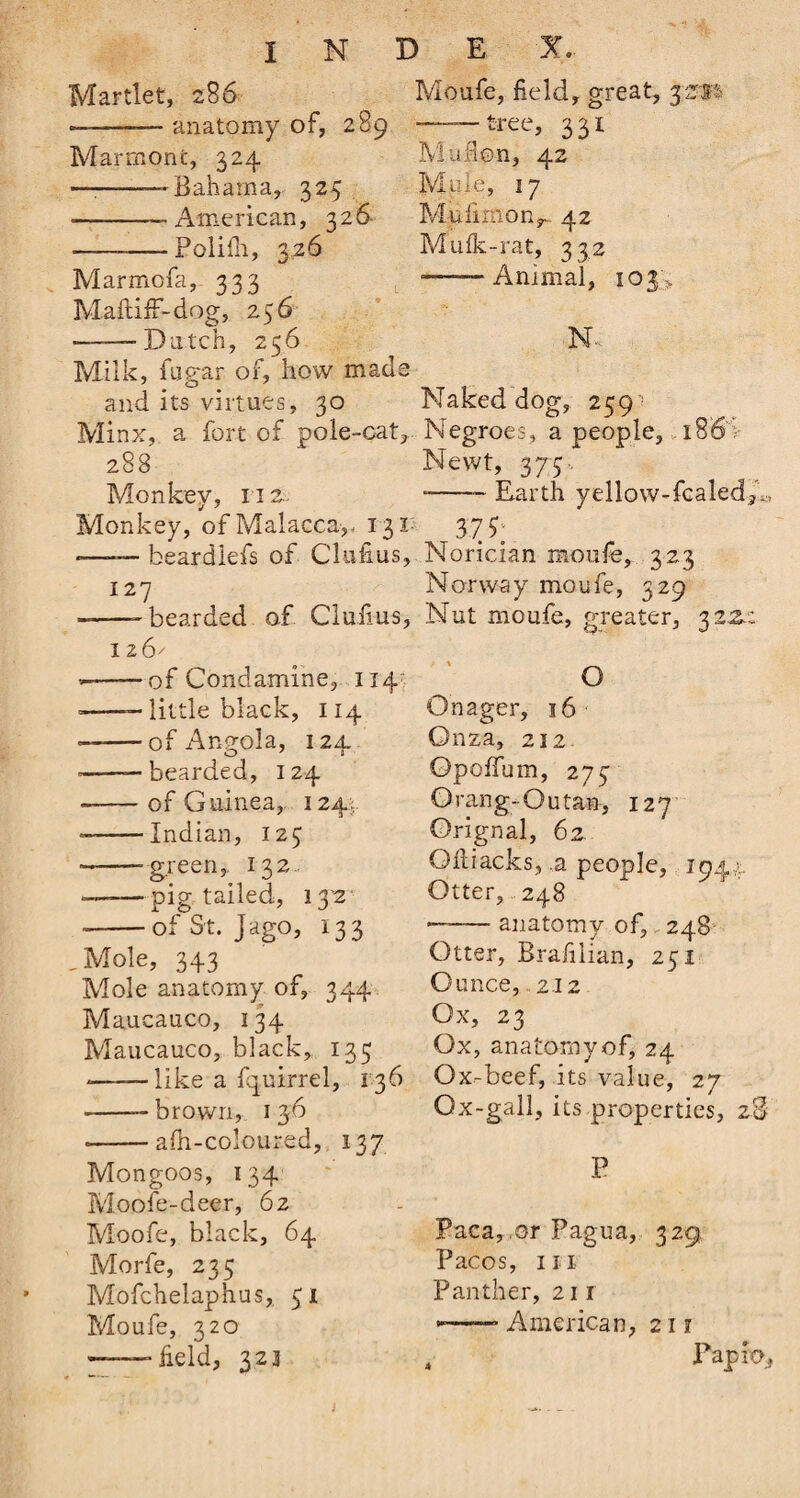 INDEX.
Martlet, 286
—— anatomy of, 289
Marmont, 324
—— Bahama, 325
—— American, 326
—— Poliſh, 326
Marmoſa, 333
Maſtiff-dog, 256
—— Dutch, 256
Milk, ſugar of, how made
and its virtues, 30
Minx, a ſort of pole-cat,
288
Monkey, 112
Monkey, of Malacca, 131
—— beardleſs of Cluſius,
127
—— bearded of Cluſius,
126
—— of Condamine, 114
—— little black, 114
—— of Angola, 124
—— bearded, 124
—— of Guinea, 124
—— Indian, 125
—— green, 132
—— pig tailed, 132
—— of St. Jago, 133
Mole, 343
Mole anatomy of, 344
Maucauco, 134
Maucauco, black, 135
—— like a ſquirrel, 136
—— brown, 136
—— aſh-coloured, 137
Mongoos, 134
Mooſe-deer, 62
Mooſe, black, 64
Morſe, 235
Moſchelaphus, 51
Mouſe, 320
—— field, 321
Mouſe, field, great,
—— tree, 331
Muflon, 42
Mule, 17
Muſimon, 42
Muſk-rat, 332
—— Animal, 103
N
Naked dog, 259
Negroes, a people, 186
Newt, 375
—— Earth yellow-ſcaled,
375
Norician mouſe, 323
Norway mouſe, 329
Nut mouſe, greater, 322
O
Onager, 16
Onza, 212
Opoſſum, 275
Orang-Outan, 127
Orignal, 62
Oſtiacks, a people, 194
Otter, 248
—— anatomy of, 248
Otter, Braſilian, 251
Ounce, 212
Ox, 23
Ox, anatomy of, 24
Ox-beef, its value, 27
Ox-gall, its properties, 28
P
Paca, or Pagua, 329
Pacos, 111
Panther, 211
—— American, 211
Papio,